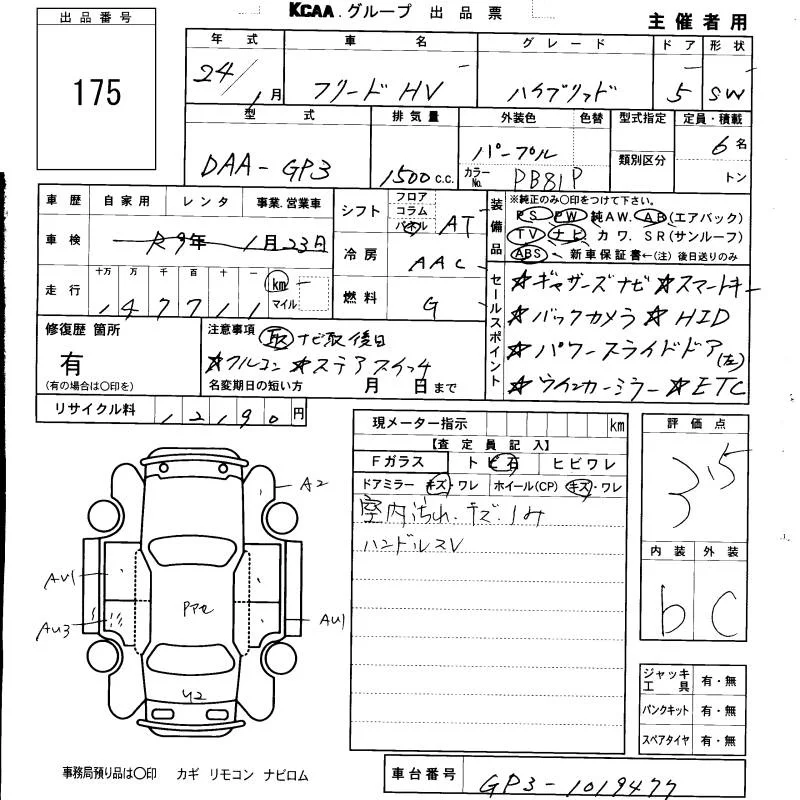 KCAA.グループ 出品票
主催者用
出品番号
175
年式 車名 グレード ドア 形状
24/1月 フリード HV ハイブリッド 5 SW
型式 排気量 外装色 色替 型式指定 定員・積載
DAA-GP3 1500c.c. パープル 6名
カラーNo. PB81P 類別区分 トン
車歴 自家用 レンタ 事業.営業車
車検 R9年 1月23日
走行 十万 万 千 百 十 一 km マイル
147711
シフト フロア コラム パネル AT
冷房 AAC
燃料 G
装備品 ※純正のみ○印をつけて下さい。
PS PW 純AW. AB(エアバック)
TV ナビ カワ. SR(サンルーフ)
ABS 新車保証書←(注) 後日送りのみ
セールスポイント
☆ギャザーズナビ ☆スマートキー
☆バックカメラ ☆HID
☆パワースライドドア(左)
☆ウインカーミラー ☆ETC
修復歴 箇所
有
(有の場合は○印を)
注意事項 取 ナビ取後日
☆フルコン ☆ステアスイッチ
名変期日の短い方 月 日まで
リサイクル料 12190円
現メーター指示 km
【査定員記入】
Fガラス ト ビ石 ヒビワレ
ドアミラー キズ・ワレ ホイール(CP) キズ・ワレ
室内汚れ・キズ・シミ
ハンドルスレ
評価点
3.5
内装 外装
b C
A2
AU1
AU3
AU1
U2
ジャッキ工具 有・無
パンクキット 有・無
スペアタイヤ 有・無
事務局預り品は○印 カギ リモコン ナビロム
車台番号 GP3-1019477